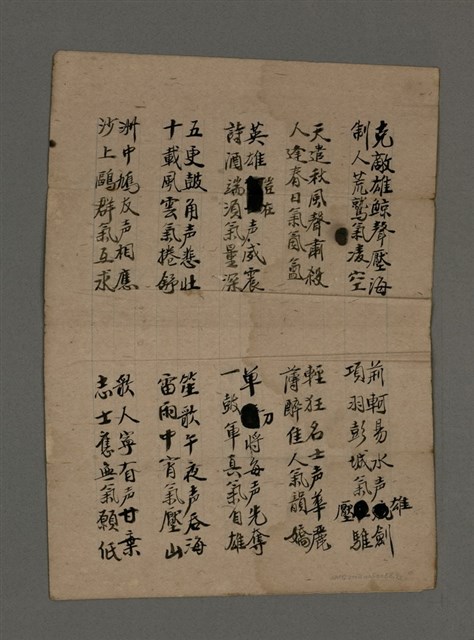 克敵雄鯨聲壓海
制人荒鷲氣凌空
天遣秋風聲肅殺
人逢春日氣氤氳
英雄豈在声威震
詩酒端須氣量深
五更鼓角声悲壯
十載風雲氣捲舒
洲中鳩友声相應
沙上鷗群氣互求
荊軻易水声雄劍
項羽彭城氣壓騅
輕狂名士声華麗
薄醉佳人氣韻嬌
單刀将每声先奪
一鼓軍真氣自雄
笙歌午夜声吞海
雷雨中宵氣壓山
歌人寧有声甘棄
志士舊無氣願低